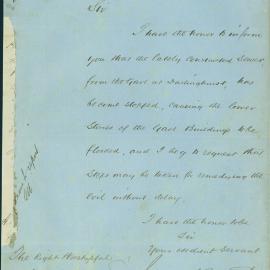 Sir
I have the honor to inform
you that the lately constructed Sewer
from the Gaol at Darlinghurst, has
become stopped, causing the lower
Stories of the Gaol Buildings to be
flooded, and I beg to request that
Steps may be taken for remedying the
Evil without delay.
I have the honor to be
Sir
Your obedient Servant
The Right Worshipful